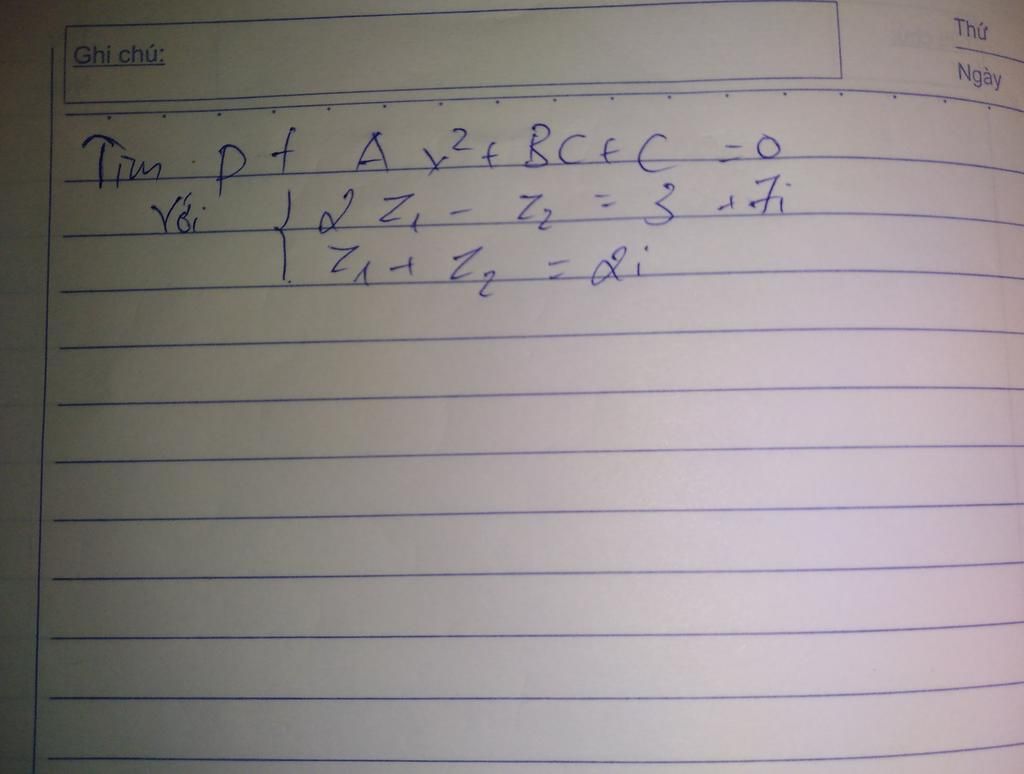 Ghi chú:
Thứ
Ngày
Tìm pt Ax²+ BC+ C = 0
Với { 2 Z₁ - Z₂ = 3 + 7i
Z₁ + Z₂ = 2i